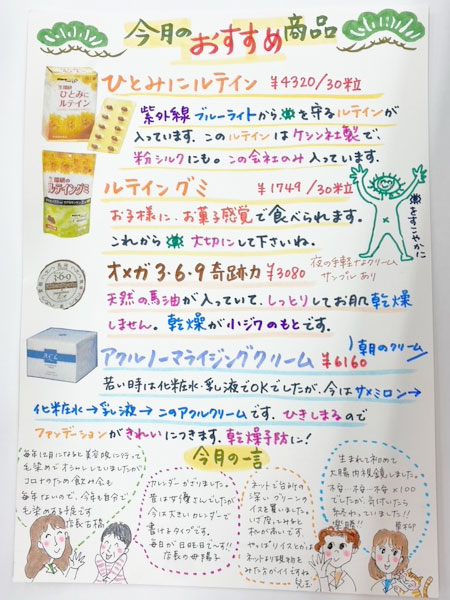 今月のおすすめ商品
ひとみにルテイン ¥4320/30粒
紫外線 ブルーライトから を守るルテインが
入っています。このルテインはケシン社製で、
粉シルクにも。この会社のみ入っています。
ひとみに
ルテイン
ルテイングミ ¥1749/30粒
お子様に、お菓子感覚で食べられます。
これから 大切にして下さいね。
ルテイングミ
をすこやかに
オメガ3・6・9奇跡力 ¥3080
夜の手軽なクリーム
サンプルあり
天然の馬油が入っていて、しっとりしてお肌乾燥
しません。乾燥が小ジワのもとです。
アクルノーマライジングクリーム ¥6160
朝のクリーム
若い時は化粧水、乳液でOKでしたが、今はサメミロン→
化粧水→乳液→このアクルクリームです。ひきしまるので
ファンデーションがきれいにつきます。乾燥予防に!
今月の一言
毎年12月になると美容院に行って
毛染めでオシャレしていましたが
コロナのため飲み会も
毎年ないので、今年も自分で
毛染めする予定です
店長 古橋
カレンダーができました。
昔は女優さんでしたが
今は大きいカレンダーで
書けるタイプです。
毎日が日曜日で〜す!!
店長の母 陽子
ネットで自分の
深いグリーンの
イスを買いました。
店でみると
私が高いです。
やっぱりイスとかは
ネットより現物を
みた方がイイですね
生まれて初めて
大腸内視鏡しました。
不安…不安…不安×100
でしたが、気付いたら
終わっていました!!